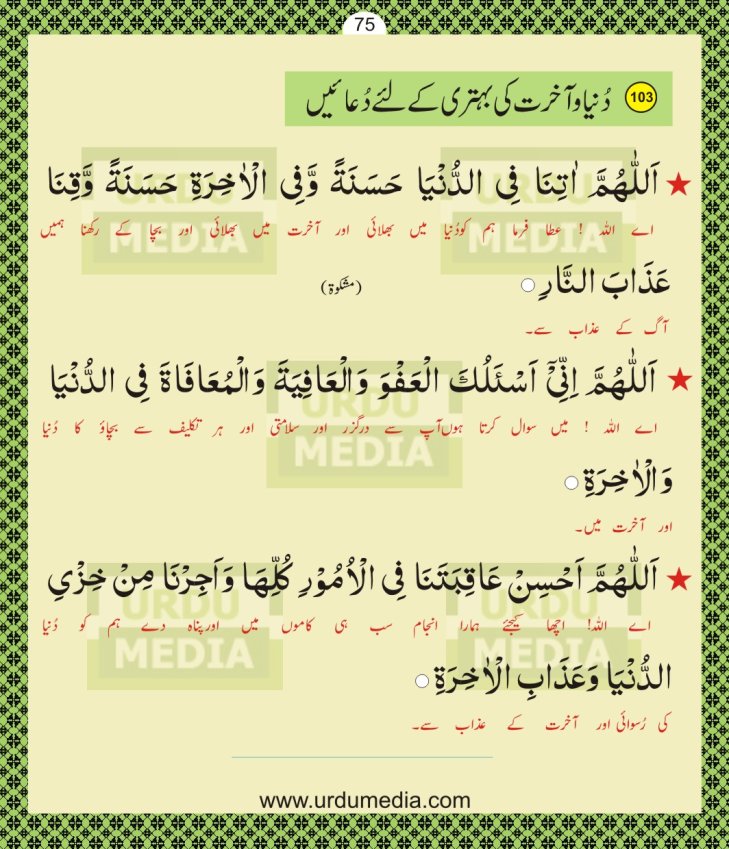 75
103 دُنیا و آخرت کی بہتری کے لئے دُعائیں
★ اَللّٰهُمَّ اٰتِنَا فِی الدُّنْیَا حَسَنَةً وَّفِی الْاٰخِرَةِ حَسَنَةً وَّقِنَا
اے اللہ ! عطا فرما ہم کو دُنیا میں بھلائی اور آخرت میں بھلائی اور بچا کے رکھنا ہمیں
عَذَابَ النَّارِ ○ (مشکوۃ)
آگ کے عذاب سے۔
★ اَللّٰهُمَّ اِنِّیْٓ اَسْئَلُكَ الْعَفْوَ وَالْعَافِیَةَ وَالْمُعَافَاةَ فِی الدُّنْیَا
اے اللہ ! میں سوال کرتا ہوں آپ سے درگزر اور سلامتی اور ہر تکلیف سے بچاؤ کا دُنیا
وَالْاٰخِرَةِ ○
اور آخرت میں۔
★ اَللّٰهُمَّ اَحْسِنْ عَاقِبَتَنَا فِی الْاُمُوْرِ كُلِّهَا وَاَجِرْنَا مِنْ خِزْیِ
اے اللہ! اچھا کیجئے ہمارا انجام سب ہی کاموں میں اور پناہ دے ہم کو دُنیا
الدُّنْیَا وَعَذَابِ الْاٰخِرَةِ ○
کی رُسوائی اور آخرت کے عذاب سے۔
www.urdumedia.com
URDU MEDIA
URDU MEDIA
URDU MEDIA
URDU MEDIA
URDU MEDIA